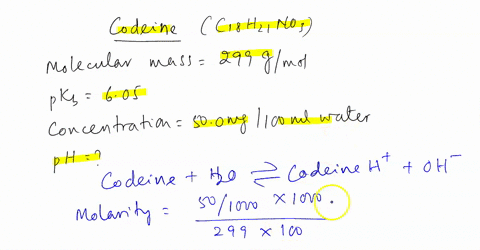 Codeine (C18H21NO3)
Molecular mass = 299 g/mol
pKb = 6.05
Concentration = 50.0mg/100ml water
pH = ?
Codeine + H2O ⇌ CodeineH+ + OH-
Molarity = 50/1000 × 1000.
299 × 100